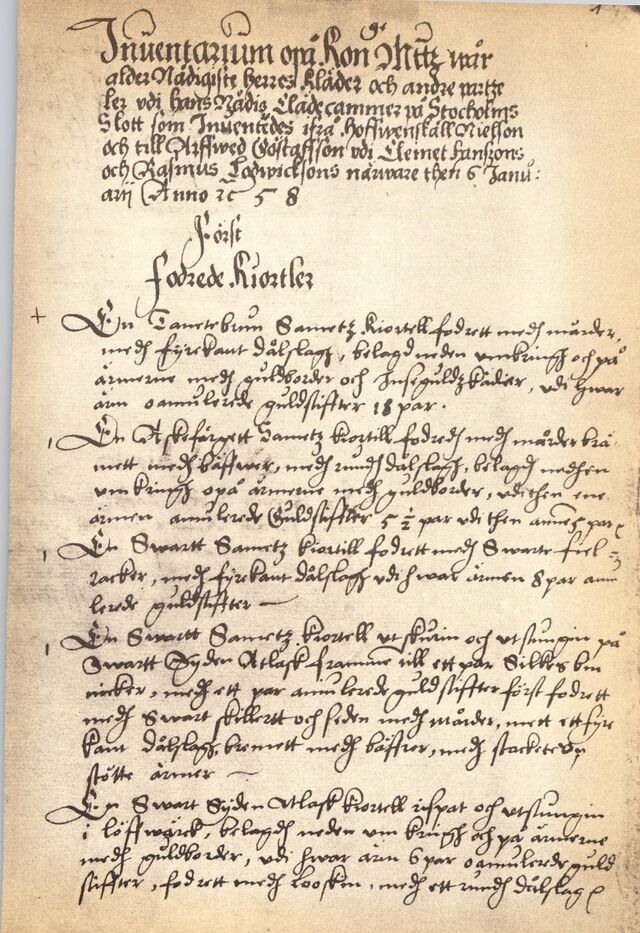 Inuentarium opå Kon ge Mttz wår
alder Nådigiste herres Kläder och andre partze
ler vdi hans Nådis Clädecammer på Stocholms
Slott som Inuentedes ifrå Hoffswenskall Nielsson
och till Arffwed Göstaffson vdi Clemet Hanszons
och Rasmus Lodwicksons närware then 6 Janu:
arij Anno ετ 58
Först
fodrede Kiortler
+ En Tanetebrun Sametz Kiortell fodrett medh mårder,
medh fyrekant dålslagh, belagd neden vmkringh och på
ärmerne medh guldborder och Inseguldz kädier, vdi hwar
ärm oamulerede guldstiffter 18 par.
1 En Askefärgett Sametz kiortill fodredh medh mårder brä
mett medh bäffwer, medh rundh dålslagh, belagdh nedhen
vmkringh opå ärmerne medh guldborder, vdi then ene
ärmen amulerede Guldstiffter 5 ½ par vdi then annen par
1 En Swartt Sametz kiortill fodrett medh Swarte fiel
racker, medh fyrkant dålslagh vdi hwar ärmen 8 par amu
lerede guldstiffter —
1 En Swartt Sametz kiortell vtskurin och vtstungin på
Swartt Syden Atlask framme till ett par Silkes
medh ett par amulerede guldstiffter först fodrett
medh Swart skillertt och seden medh mårder, mett ett fyre
kant dålslagh, bremett medh bäffwer, medh stackete
stötte ärmer —
En Swart Syden Atlask kiortell rispat och vtstungin
i löffwärck, belagdh neden vm kringh och på ärmerne
medh guldborder, vdi hwar ärm 6 par oamulerede guld
stiffter, fodrett medh Looskin, medh ett rundh dålslag